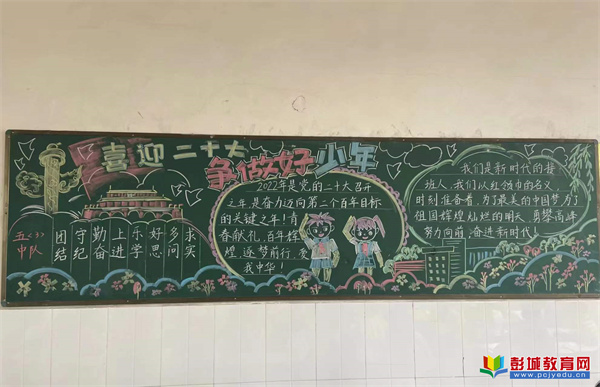 喜迎二十大
争做好少年
五<3>
中队
团结
守纪
勤奋
上进
乐学
好思
多问
求实
2022年是党的二十大召开
之年是奋力迈向第二个百年目标
的关键之年!青
春献礼,百年辉
煌,逐梦前行,爱
我中华!
我们是新时代的接
班人,我们以红领巾的名义,
时刻准备着,为了最美的中国梦,为了
祖国辉煌灿烂的明天,勇攀高峰
努力向前,奋进新时代!
彭城教育网
www.pcjyedu.cn